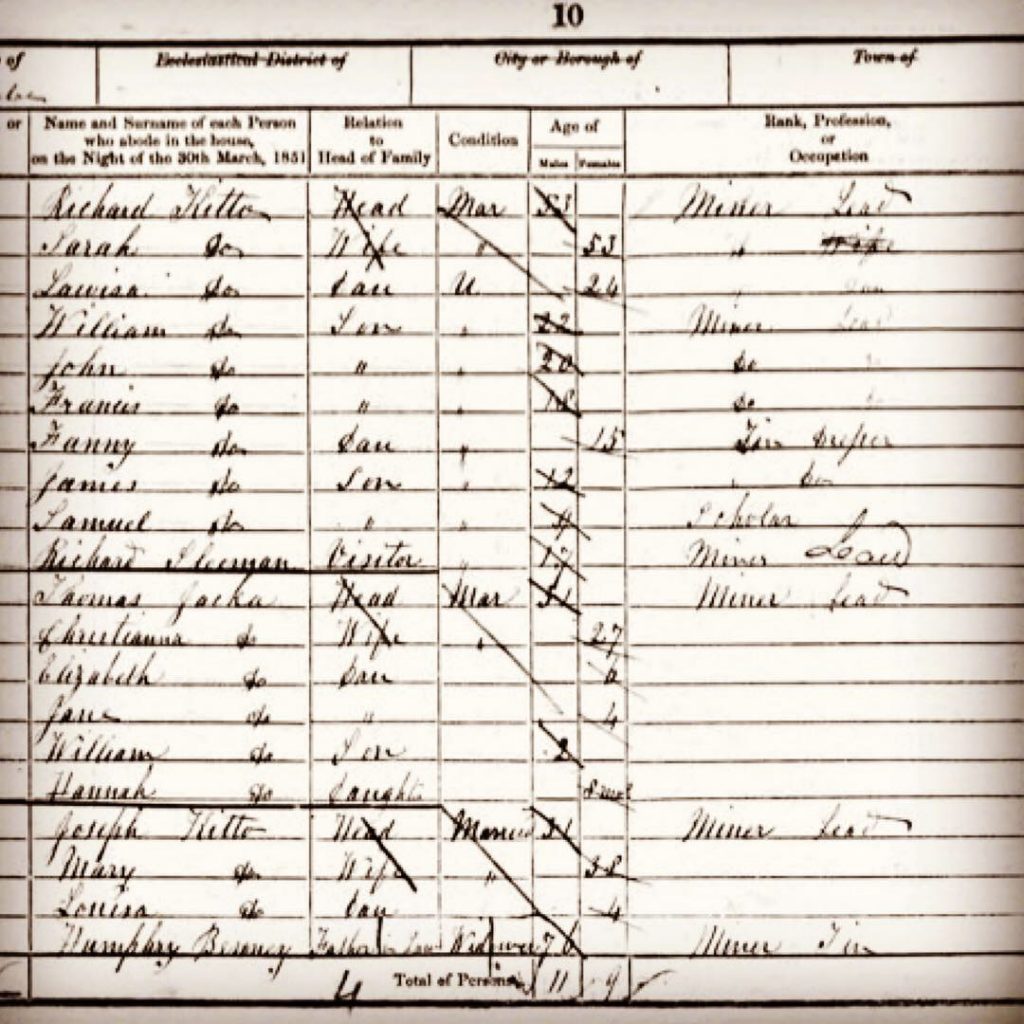 10
of Ecclesiastical District of City or Borough of Town of
or Name and Surname of each Person who abode in the house, on the Night of the 30th March, 1851 Relation to Head of Family Condition Age of Males Females Rank, Profession, or Occupation
Richard Kitto Head Mar 53 Miner Lead
Sarah Do Wife " 53 " Wife
Lawisa Do Dau U 24 " Dau
William Do Son " 22 Miner Lead
John Do " " 20 Do
Francis Do " " 18 Do
Fanny Do Dau " 15 Tin Dresser
James Do Son " 12 " Do
Samuel Do " " 9 Scholar
Richard Sleeman Visitor " 17 Miner Lead
Thomas Jacka Head Mar 31 Miner Lead
Christianna Do Wife " 27
Elizabeth Do Dau 6
Jane Do " 4
William Do Son 2
Hannah Do Daught 8 mo
Joseph Kitto Head Married 31 Miner Lead
Mary Do Wife " 38
Louisa Do Dau 4
Humphry Father in Law Widower 76 Miner Tin
4 Total of Persons 11 9